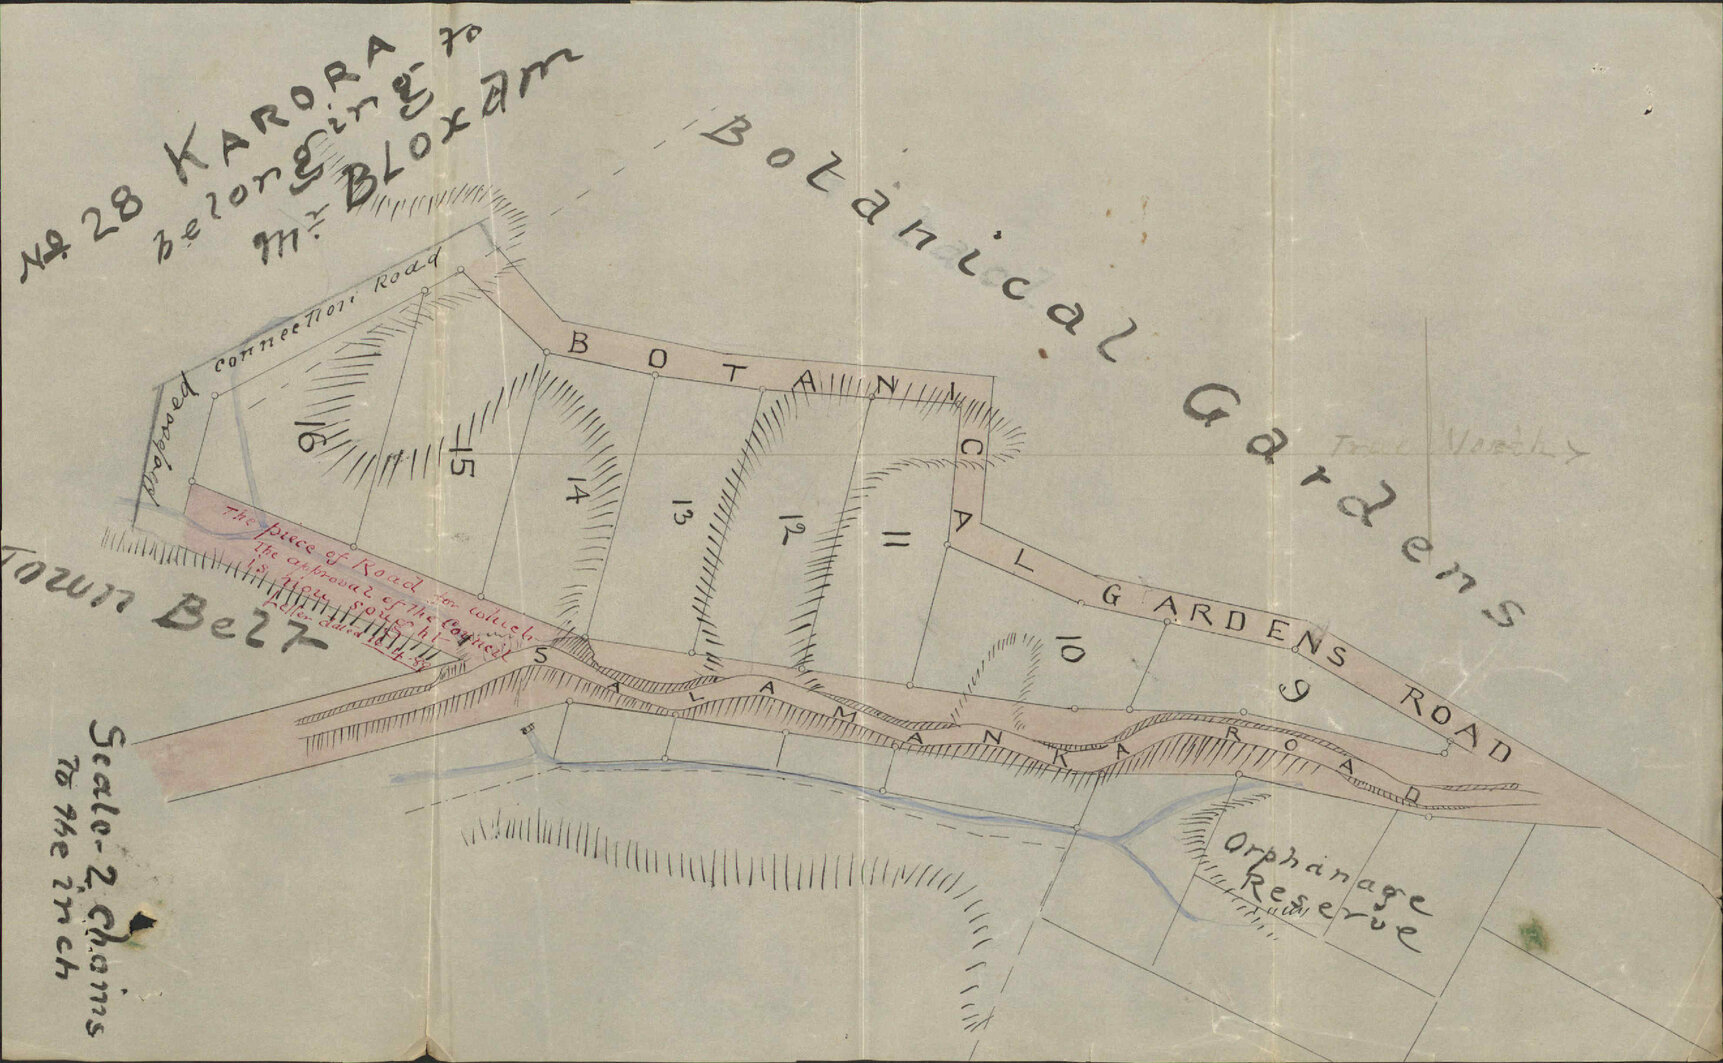 No 28 KARORA
belonging to
Mr BLOXAM
Botanical Gardens
Proposed connection Road
BOTANICAL GARDENS ROAD
True North
16
15
14
13
12
11
10
9
The piece of Road for which
the approval of the Council
is now sought
Letter dated
Town Belt
SALAMANKA ROAD
Orphanage
Reserve
Scale - 2 chains
To the inch